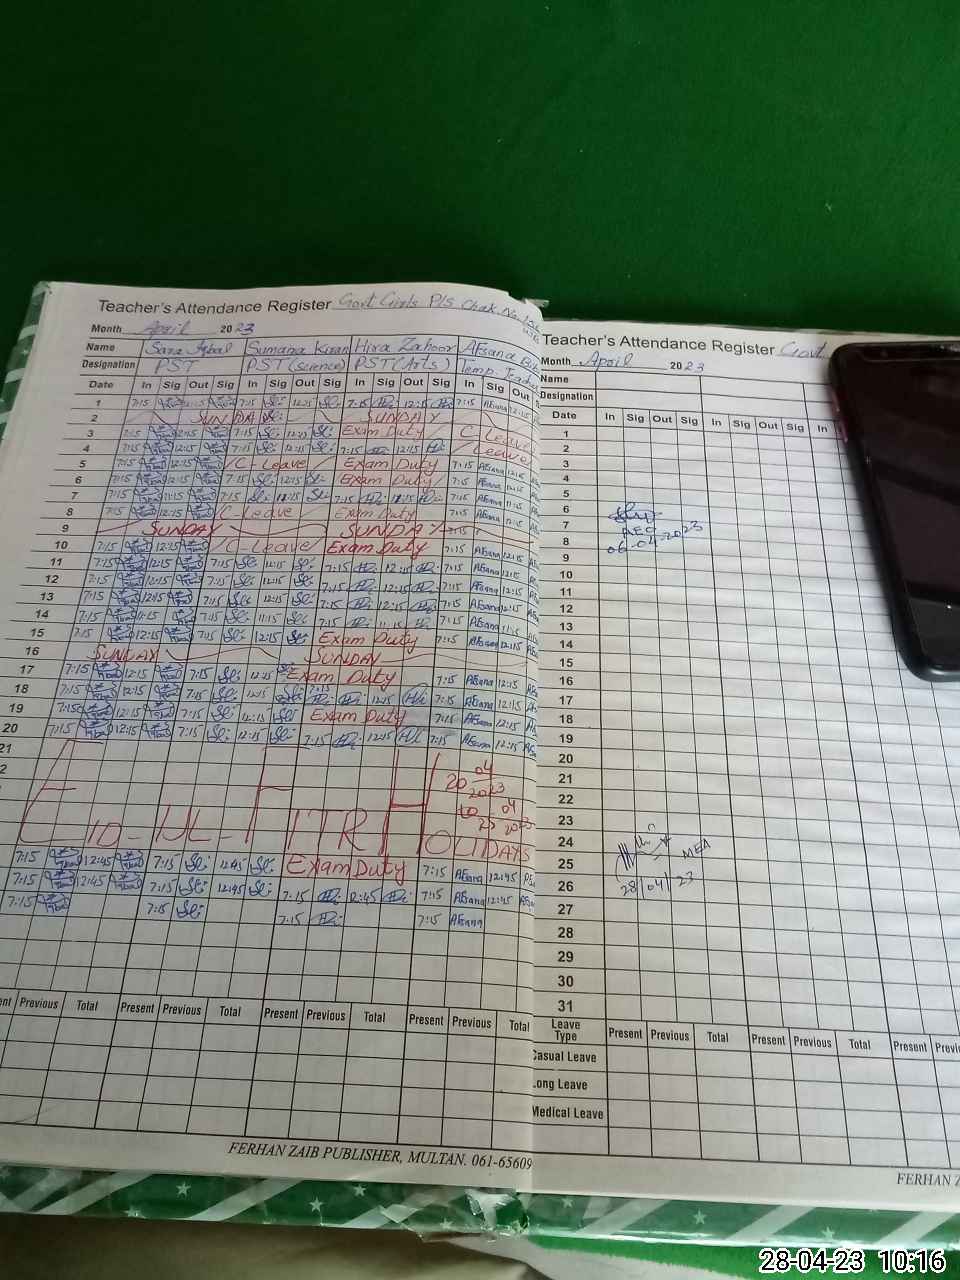 Teacher's Attendance Register Govt Girls P/S Chak No.
Month April 2023
Name Sara Iqbal Sumana Kiran Hira Zahoor Afsana
Designation PST PST (Science) PST (Arts) Temp.
Date In Sig Out Sig In Sig Out Sig In Sig Out Sig In Sig Out
1 7:15 7:15 12:15 7:15 12:15 7:15 Afsana
2 SUNDAY SUNDAY
3 7:15 12:15 7:15 12:15 Exam Duty C Leave
4 7:15 12:15 7:15 12:15 7:15 12:15 Leave
5 7:15 12:15 C-Leave Exam Duty 7:15 Afsana 12:15
6 7:15 12:15 7:15 12:15 Exam Duty 7:15 Afsana 12:15
7 7:15 11:15 7:15 7:15 11:15 7:15 Afsana
8 7:15 C-Leave Exam Duty 7:15 Afsana
9 SUNDAY SUNDAY
10 7:15 12:15 C-Leave Exam Duty 7:15 Afsana 12:15
11 7:15 12:15 7:15 12:15 7:15 12:15 7:15 Afsana 12:15
12 7:15 12:15 7:15 12:15 7:15 12:15 7:15 Afsana 12:15
13 7:15 12:15 7:15 12:15 7:15 12:15 7:15 Afsana 12:15
14 7:15 11:15 7:15 11:15 7:15 11:15 7:15 Afsana 11:15
15 7:15 12:15 7:15 12:15 Exam Duty 7:15 Afsana 12:15
16 SUNDAY SUNDAY
17 7:15 12:15 7:15 12:15 Exam Duty 7:15 Afsana 12:15
18 7:15 12:15 7:15 12:15 7:15 12:15 7:15 Afsana 12:15
19 7:15 12:15 7:15 12:15 Exam Duty 7:15 Afsana 12:15
20 7:15 12:15 7:15 12:15 7:15 12:15 7:15 Afsana 12:15
21
EID-UL-FITR HOLIDAYS
20 04 2023
to
25 04 2023
7:15 12:45 7:15 12:45 Exam Duty 7:15 Afsana 12:45
7:15 12:45 7:15 12:45 7:15 12:45 7:15 Afsana 12:45
7:15 7:15 7:15 7:15 Afsana
Previous Total Present Previous Total Present Previous Total Present Previous Total
FERHAN ZAIB PUBLISHER, MULTAN. 061-65609
Teacher's Attendance Register Govt
Month April 2023
Name
Designation
Date In Sig Out Sig In Sig Out Sig In
1
2
3
4
5
6
7 AEO
8 06-04-2023
9
10
11
12
13
14
15
16
17
18
19
20
21
22
23
24
25 MEA
26 28/04/23
27
28
29
30
31
Leave Type Present Previous Total Present Previous Total Present
Casual Leave
Long Leave
Medical Leave
FERHAN
28-04-23 10:16